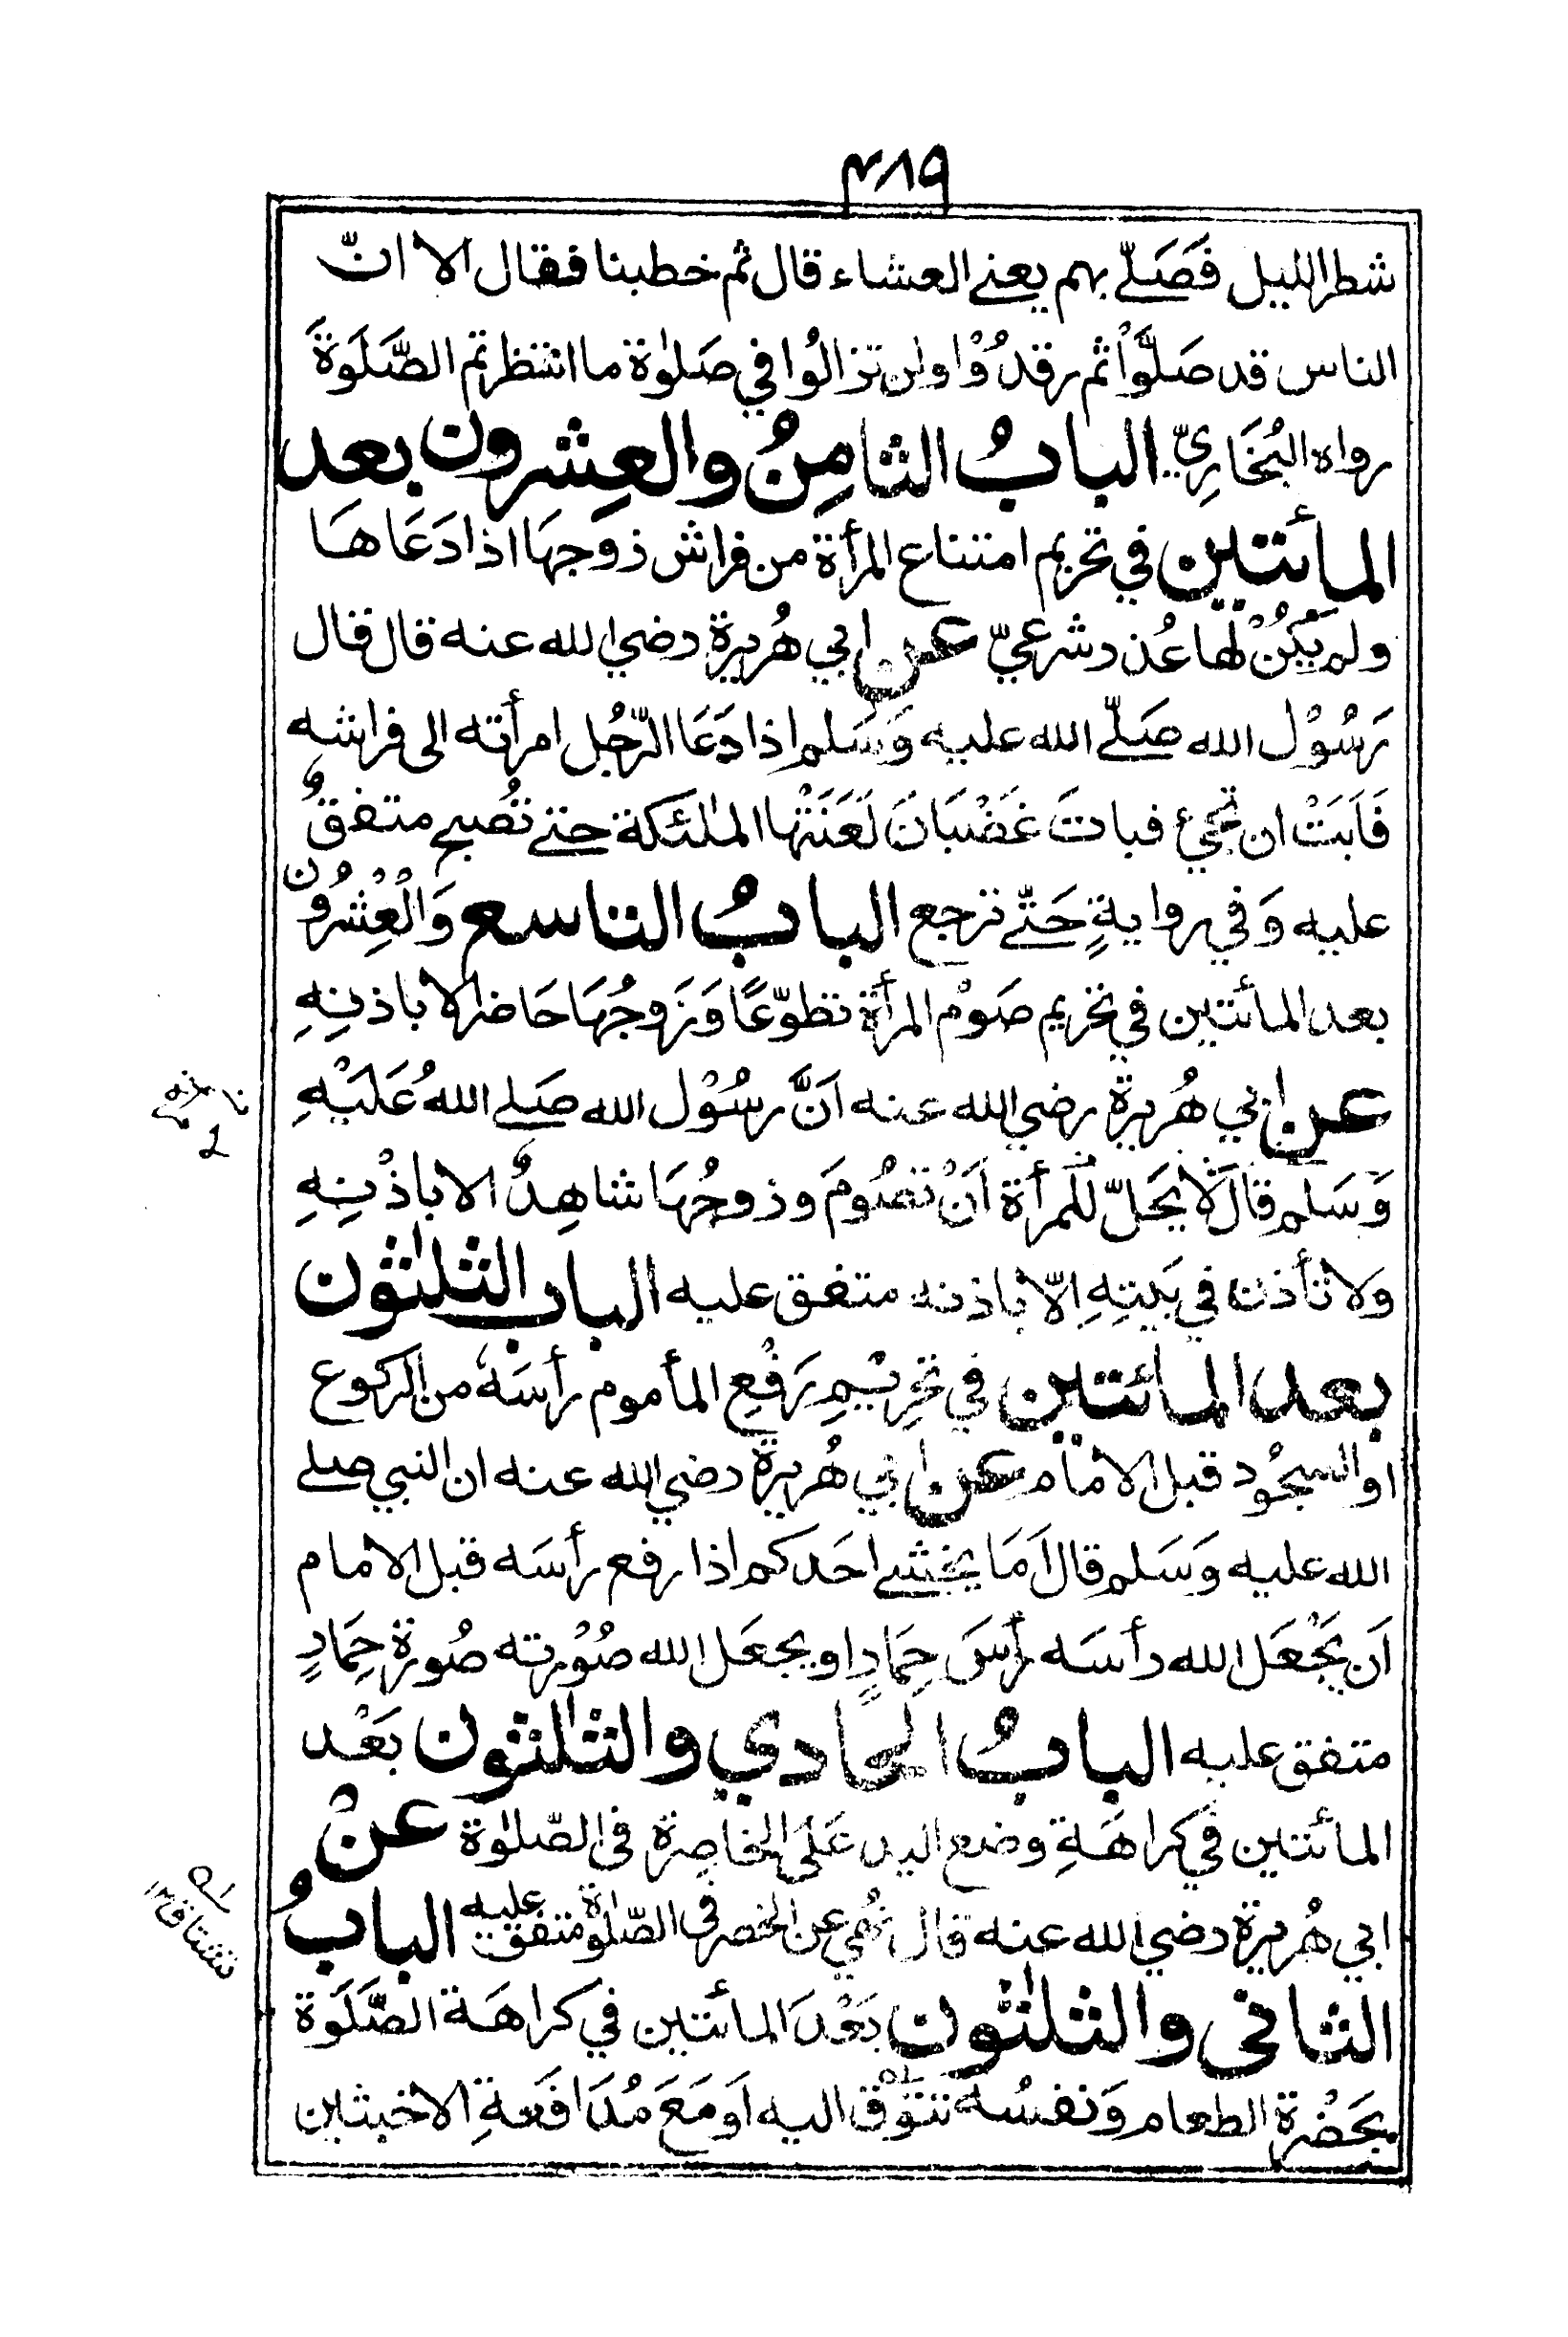 ۴۸۹
شطر الليل فَصَلّے بهم يعنے العشاء قال ثم خطبنا فقال الا انّ
الناس قد صَلَّوْا ثم رقدُوْا ولن تزالُوا في صَلٰوة ما انتظرتم الصَّلَوةَ
رواه البُخَارِيّ البابُ الثامِنُ والعِشرون بعد
المأئتين في تحريم امتناع المرأة من فراش زوجهَا اذا دَعَاهَا
ولم يَكُنْ لَهَا عُذر شرعيّ عن ابي هُريرة رضي الله عنه قال قال
رَسُوْل الله صَلّے الله عليه وَسَلم اذا دَعَا الرّجُل امرأته الى فراشه
فَاَبَتْ ان تجيْ فبات غَضْبَانَ لَعَنَتْهَا الملٰئكة حتے تُصبح متفقٌ
عليه وَفي روايةٍ حَتّے ترجع البابُ التاسع وَالْعِشْرُون
بعد المأئتين في تحريم صَوْم المرأة تطوّعًا وَزَوجُهَا حَاضر الا باذنِهِ
عن ابي هُريرة رضي الله عنه اَنَّ رسُوْل الله صَلے اللهُ عَلَيْهِ
وَسَلم قال لَا يَحَلّ للمرأة اَنْ تصُومَ وزوجُهَا شاهِدٌ الا باذْنِهِ
ولا تأذن في بَيتِهِ اِلّا باذنه متفق عليه الباب الثلٰثون
بعد المائتين في تحرِيْمِ رَفْعِ المأموم رأسَهٗ من الركوع
او السجُود قبل الامام عن ابي هُريرة رضي الله عنه ان النبي صلے
الله عليه وَسَلم قال اَمَا يخشے احَدكم اذا رفع رأسَه قبل الامام
اَن يَجْعَل الله رأسَه رأسَ حِمَارٍ او يجعَل الله صُوْرته صُورة حِمَارٍ
متفق عليه البابُ الحادي والثلٰثون بَعْد
المأئتين في كراهَةِ وضع اليد عَلَى الخاصِرة في الصّلٰوة عنْ
ابي هُريرة رضي الله عنه قال نُهي عن الخصر في الصّلٰوة متفق عليه البابُ
الثاني والثلٰثون بَعْدَ المأئتين في كراهَة الصَّلَوة
بحَضْرة الطعام وَنفسُه تتوْق اليه اَو مَعَ مُدَافَعةِ الاخبثين